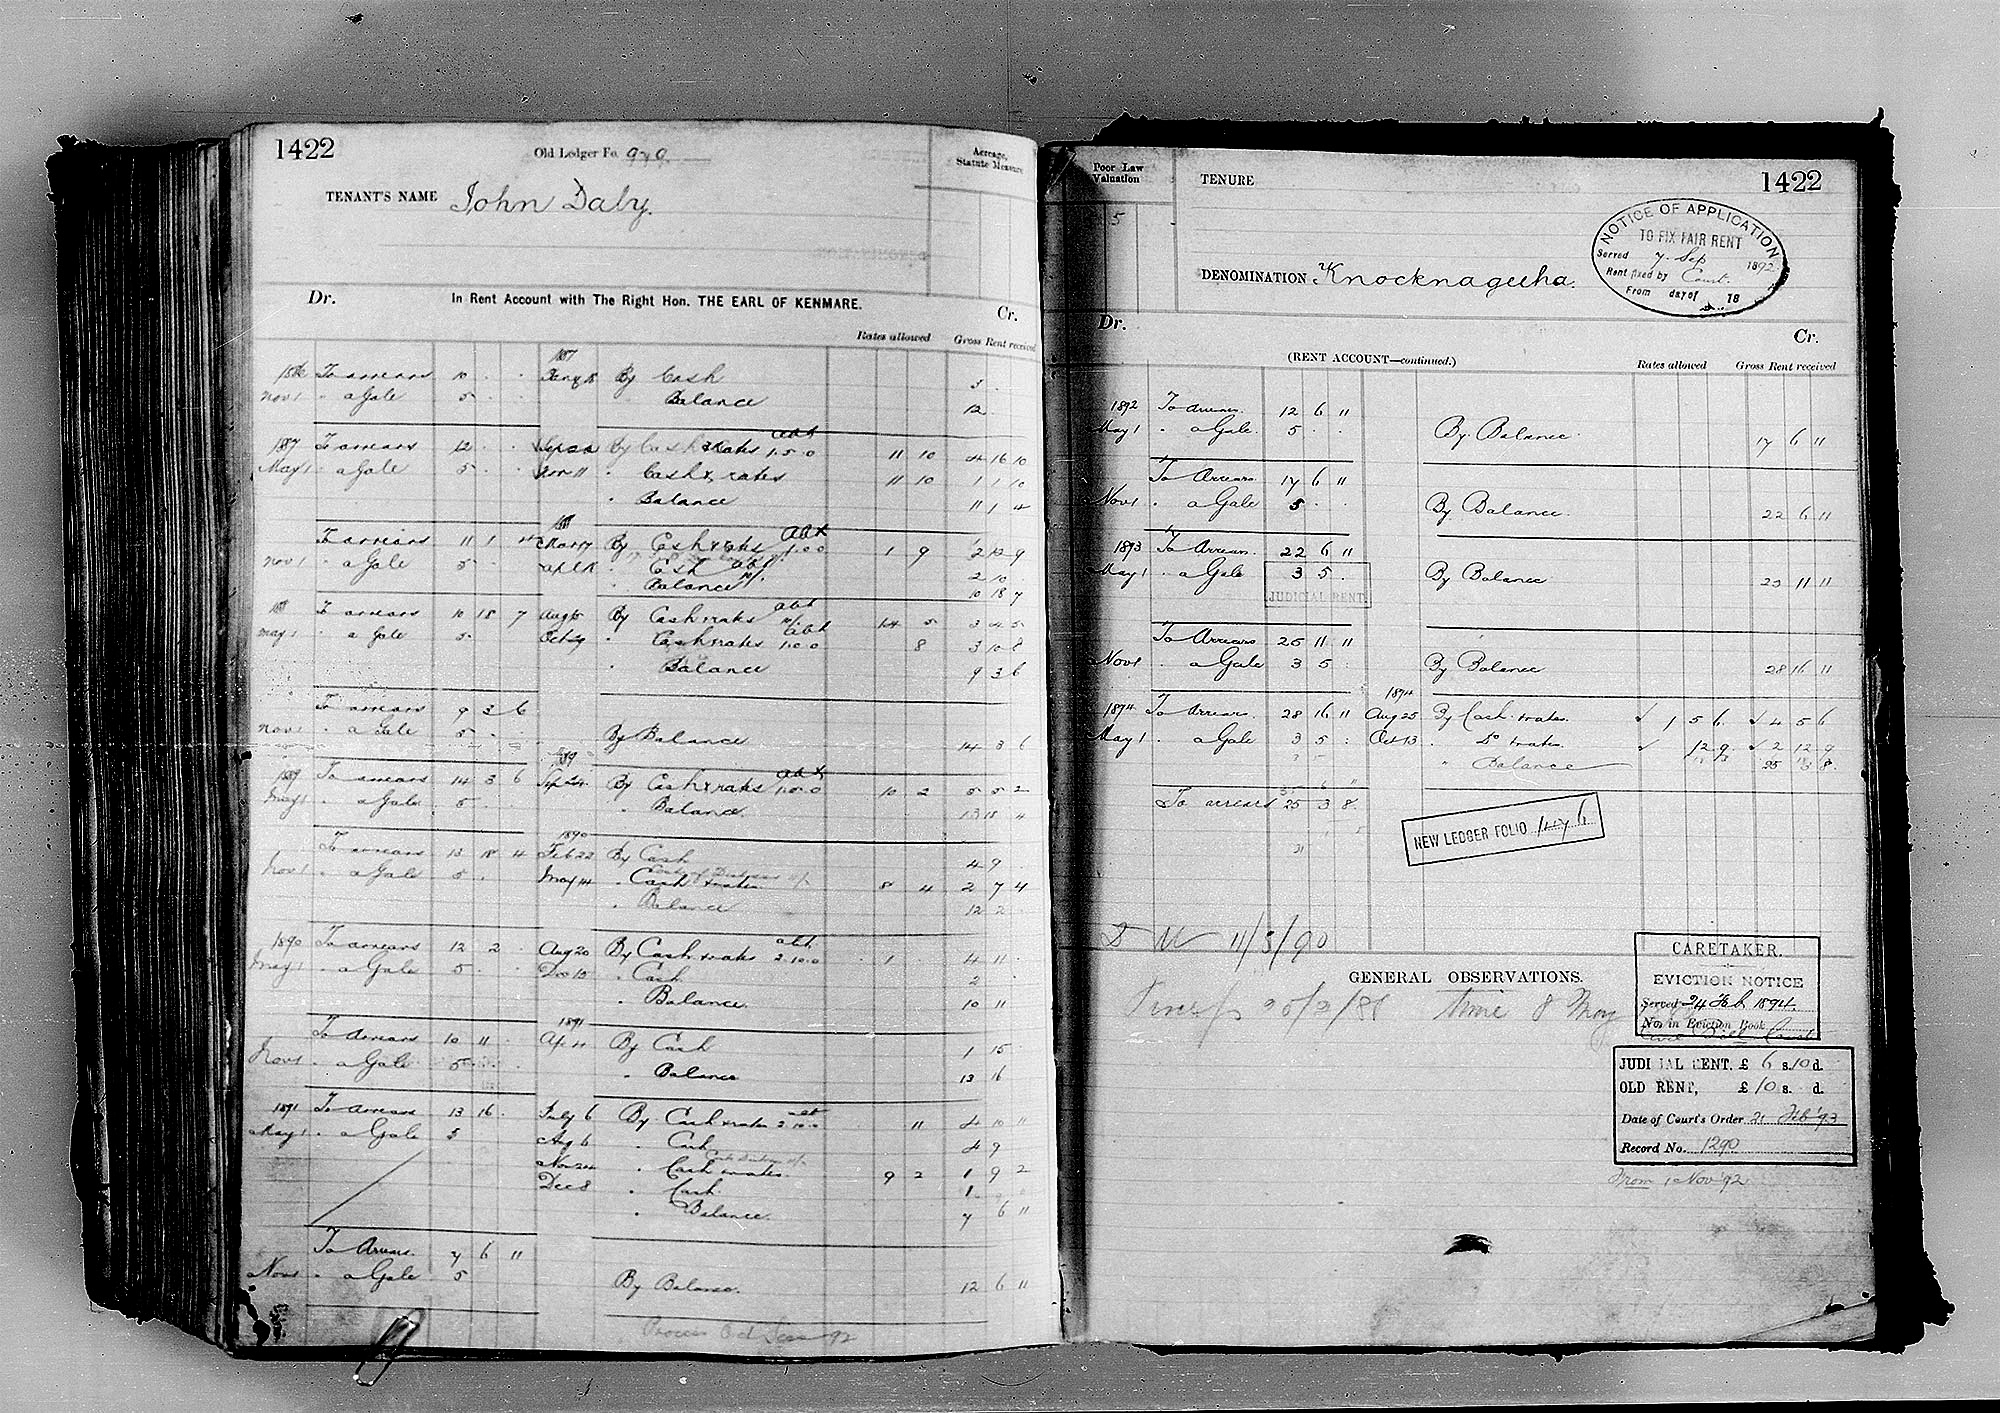 1422
Old Ledger Fo. 979
Acreage, Statute Measure
TENANT'S NAME John Daly.
Dr. In Rent Account with The Right Hon. THE EARL OF KENMARE. Cr.
Rates allowed Gross Rent received
1886 To arrears 10 . . 187 Jany 18 By Cash 3 .
Nov 1 " a Gale 5 . . Balance 12 .
1887 To arrears 12 . . By Cash & rates abt 1.5.0 11 10 4 16 10
May 1 " a Gale 5 . . Nov 11 " Cash & rates 11 10 1 1 10
" Balance 11 1 4
To arrears 11 1 4 Mar 17 By Cash & rates abt 1.0.0 1 9 2 12 9
Nov 1 " a Gale 5 . " Cash abt 2 10
" Balance 10 18 7
To arrears 10 18 7 Aug 15 By Cash & rates abt 14 5 3 4 5
May 1 " a Gale 5 . Oct 29 " Cash & rates abt 1.0.0 8 3 10 8
" Balance 9 3 6
To arrears 9 3 6
Nov 1 " a Gale 5 . By Balance 14 3 6
1889 To arrears 14 3 6 Sep 24 By Cash & rates abt 10 2 5 5 2
May 1 " a Gale 5 . " Balance 13 18 4
1890
To arrears 13 18 4 Feb 22 By Cash 4 9 .
Nov 1 " a Gale 5 . May 14 " Cash & rates 8 4 2 7 4
" Balance 12 2 .
1890 To arrears 12 2 . Aug 20 By Cash & rates abt 2.10.0 1 . 4 11
May 1 " a Gale 5 . . Dec 10 " Cash 2
" Balance 10 11
1891
To Arrears 10 11 . Ap 4 By Cash 1 15
Nov 1 " a Gale 5 " Balance 13 16
1891 To Arrears 13 16 . July 6 By Cash & rates abt 2.10.0 " 4 10 "
May 1 " a Gale 5 Aug 6 " Cash 4 9
Nov 24 " Cash & rates 9 2 1 9 2
Dec 8 " Cash 1
" Balance 7 6 "
To Arrears 7 6 "
Nov 1 " a Gale 5 By Balance. 12 6 "
Poor Law Valuation
5
TENURE
1422
NOTICE OF APPLICATION
TO FIX FAIR RENT
Served 7 Sep 1892
Rent fixed by Court.
From day of 18
DENOMINATION Knocknageeha.
Dr. Cr.
(RENT ACCOUNT—continued.)
Rates allowed Gross Rent received
1892 To arrears 12 6 "
May 1 " a Gale 5 . . By Balance. 17 6 "
To Arrears 17 6 "
Nov 1 " a Gale 5 . . By Balance 22 6 "
1893 To Arrears 22 6 "
May 1 " a Gale 3 5 . By Balance 25 11 "
JUDICIAL RENT
To Arrears 25 11 "
Nov 1 " a Gale 3 5 . By Balance 28 16 "
1894
1894 To Arrears. 28 16 " Aug 25 By Cash & rates. ✓ 1 5 6 ✓ 4 5 6
May 1 " a Gale 3 5 . Oct 13 " Do & rates. ✓ 12 9 ✓ 2 12 9
" Balance 25 3 8
To arrears 25 3 8
NEW LEDGER FOLIO 6
11/3/90
GENERAL OBSERVATIONS.
8 May
CARETAKER.
EVICTION NOTICE
Served 24 Feb 1894.
No. in Eviction Book
Civil Bill Court
JUDICIAL RENT, £ 6 s. 10 d.
OLD RENT, £ 10 s. d.
Date of Court's Order 21 Feb '93
Record No. 1290
From 1 Nov '92